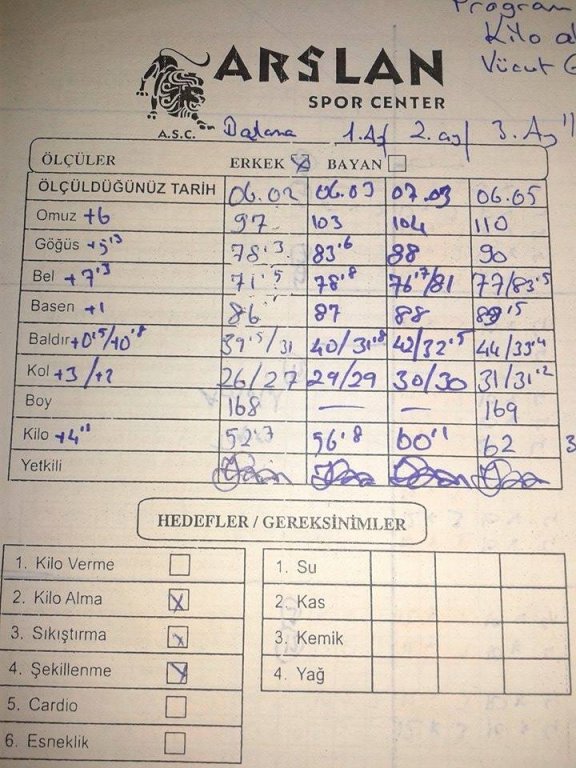 Program
Kilo al
Vücut G
ARSLAN
SPOR CENTER
A.S.C.
1.Ay 2.ay 3.Ay
ÖLÇÜLER ERKEK BAYAN
ÖLÇÜLDÜĞÜNÜZ TARİH 06.02 06.03 07.03 06.05
Omuz +6 97 103 104 110
Göğüs +5'3 78'3 83'6 88 90
Bel +7'3 71'5 78'8 76'7/81 77/83'5
Basen +1 86 87 88 89'5
Baldır +0'5/+0'8 39'5/31 40/31'8 42/32'5 44/33'4
Kol +3/+2 26/27 29/29 30/30 31/31'2
Boy 168 — — 169
Kilo +4'1 52'7 56'8 60'1 62 3
Yetkili
HEDEFLER / GEREKSİNİMLER
1. Kilo Verme
2. Kilo Alma X
3. Sıkıştırma X
4. Şekillenme X
5. Cardio
6. Esneklik
1. Su
2. Kas
3. Kemik
4. Yağ